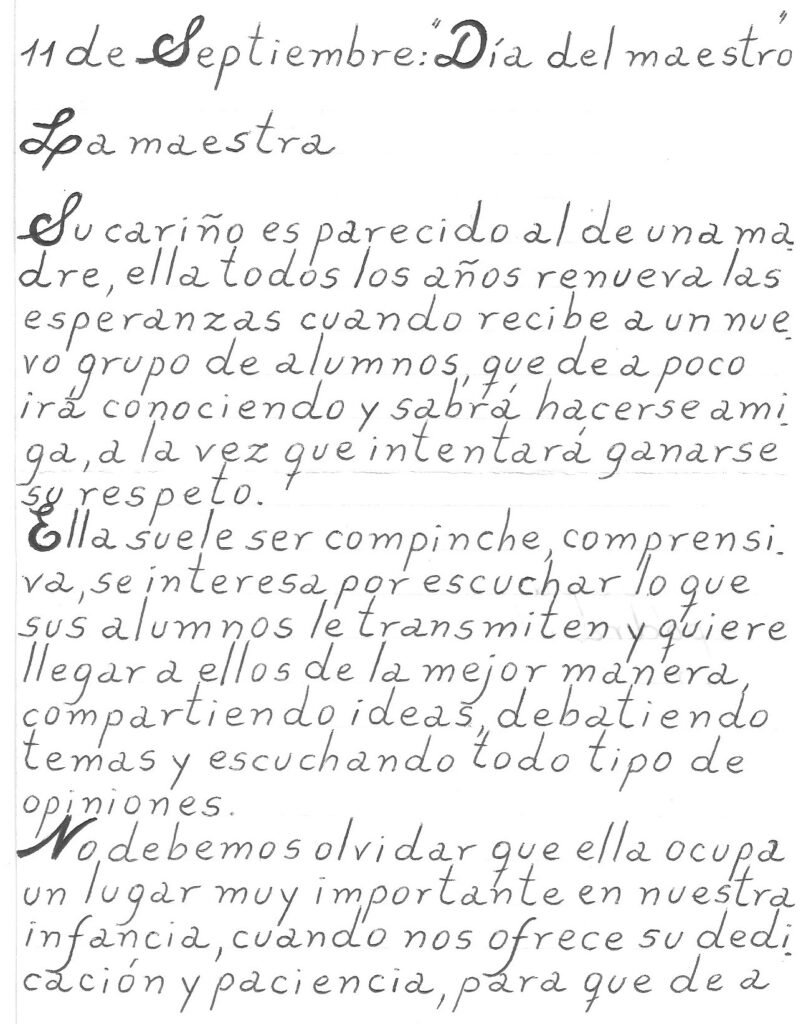 11 de Septiembre: "Día del maestro"
La maestra
Su cariño es parecido al de una ma-
dre, ella todos los años renueva las
esperanzas cuando recibe a un nue-
vo grupo de alumnos, que de a poco
irá conociendo y sabrá hacerse ami-
ga, a la vez que intentará ganarse
su respeto.
Ella suele ser compinche, comprensi-
va, se interesa por escuchar lo que
sus alumnos le transmiten y quiere
llegar a ellos de la mejor manera,
compartiendo ideas, debatiendo
temas y escuchando todo tipo de
opiniones.
No debemos olvidar que ella ocupa
un lugar muy importante en nuestra
infancia, cuando nos ofrece su dedi-
cación y paciencia, para que de a